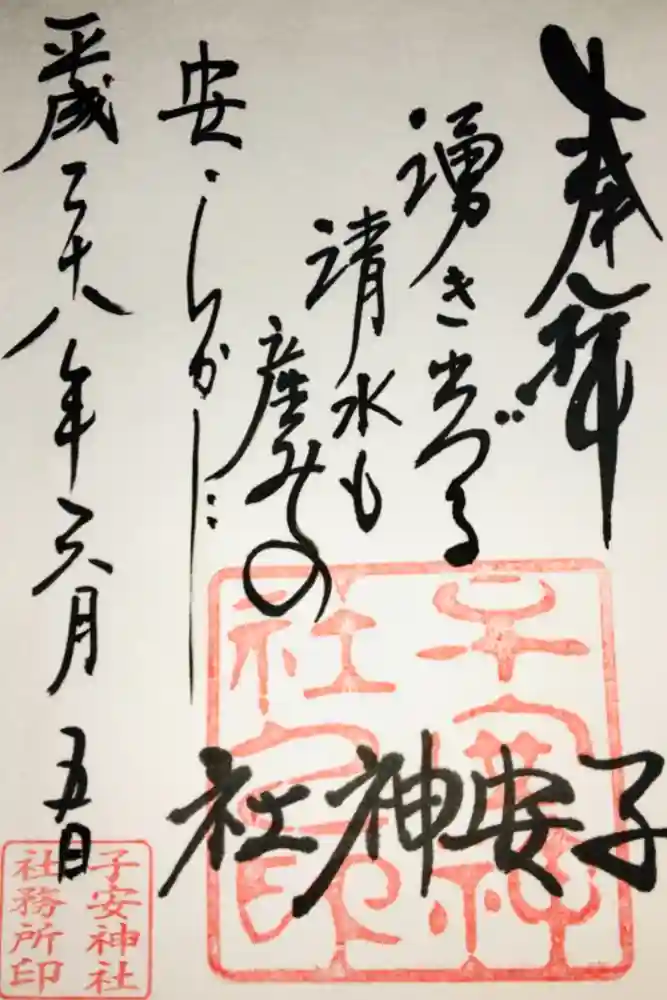 奉拝
湧き出づる
清水も
産みの
安らかに
平成二十八年六月五日
子安神社
子安神社印
子安神社
社務所印